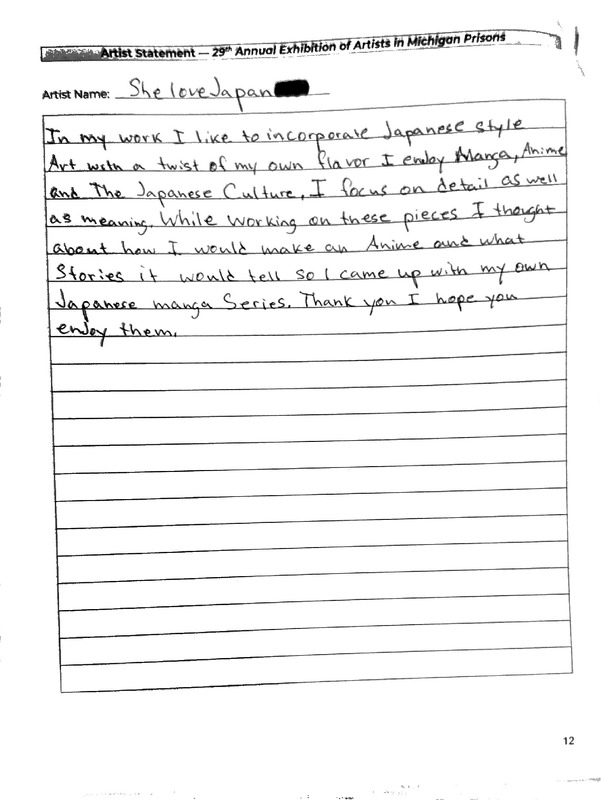 Artist Statement — 29th Annual Exhibition of Artists in Michigan Prisons
Artist Name: SheloveJapan
In my work I like to incorporate Japanese style
Art with a twist of my own flavor I enjoy Manga, Anime
and The Japanese Culture, I focus on detail as well
as meaning. While working on these pieces I thought
about how I would make an Anime and what
Stories it would tell so I came up with my own
Japanese manga Series. Thank you I hope you
enjoy them.
12